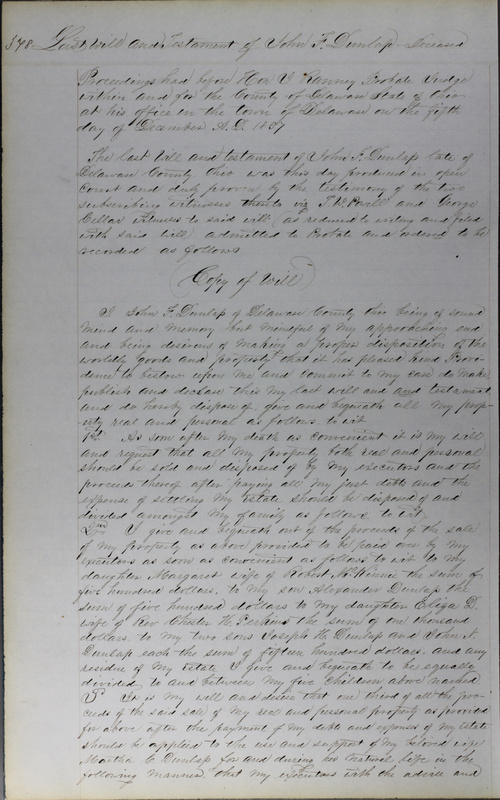 378 Last Will and Testament of John F. Dunlap Deceased
Proceedings had before Hon J Ranney Probate Judge
within and for the County of Delaware State of Ohio
at his office in the town of Delaware on the fifth
day of December A.D. 1857
The last Will and testament of John F. Dunlap late of
Delaware County Ohio was this day produced in open
Court and duly proven by the testimony of the two
subscribing witnesses thereto viz T W Powell and George
Cellar witnesses to said will (as reduced to writing and filed
with said will) admitted to Probate and ordered to be
recorded as follows
(Copy of Will)
I John F. Dunlap of Delaware County Ohio being of sound
mind and memory but mindful of my approaching end
and being desirous of making a proper disposition of the
worldly goods and property that it has pleased kind Provi-
dence to bestow upon me and commit to my care do make
publish and declare this my last will and and testament
and do hereby dispose of, give and bequeath all my prop-
erty real and personal as follows to wit
1st. As soon after my death as convenient it is my will
and request that all my property both real and personal
should be sold and disposed of by my executors and the
proceeds thereof after paying all my just debts and the
expense of settling my estate should be disposed of and
divided amongst my family as follows to wit.
2nd I give and bequeath out of the proceeds of the sale
of my property as above provided to be paid over by my
executors as soon as convenient as follows to wit to my
daughter Margaret wife of Robert McKinnie the sum of
five hundred dollars, to my son Alexander Dunlap the
sum of five hundred dollars to my daughter Eliza D.
wife of Rev Chester H. Perkins the sum of one thousand
dollars, to my two sons Joseph H. Dunlap and John N.
Dunlap each the sum of fifteen hundred dollars, and any
residue of my estate I give and bequeath to be equally
divided to and between my five children above named
3d It is my will and desire that one third of all the pro-
ceeds of the said sale of my real and personal property as provided
for above after the payment of my debts and expenses of my estate
should be applied to the use and support of my beloved wife
Martha C Dunlap for and during her natural life in the
following manner that my executors with the advice and